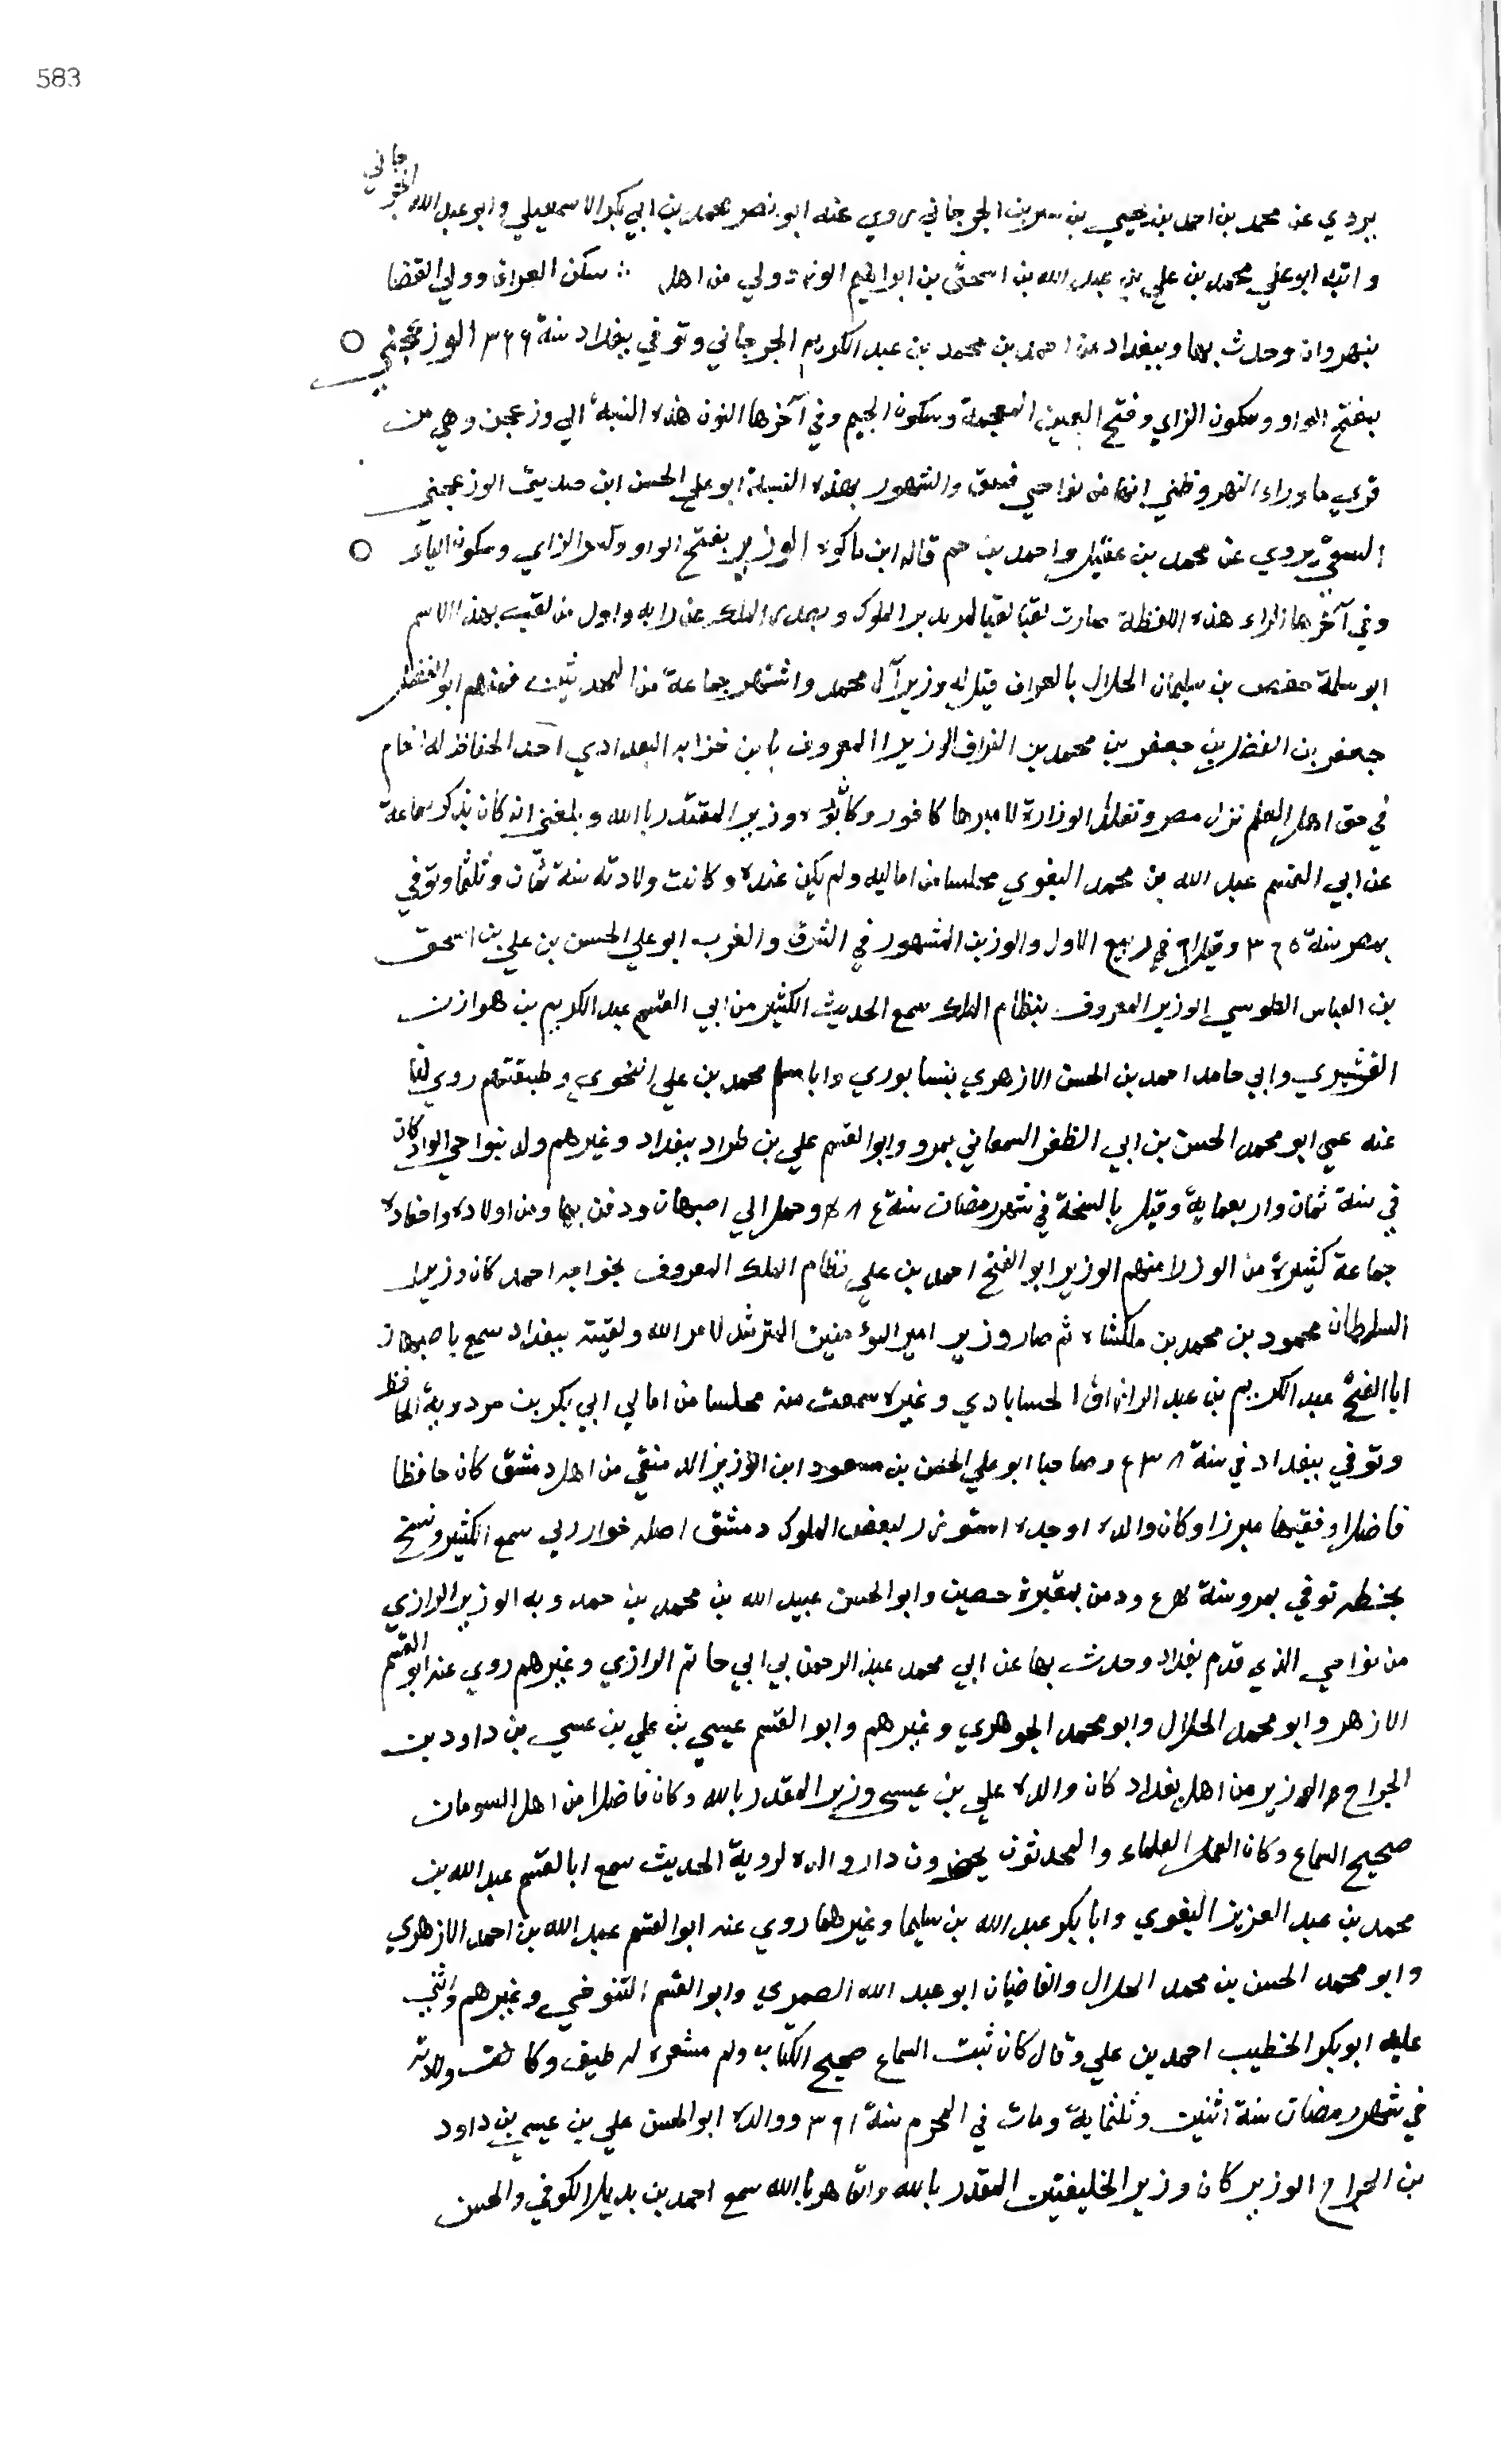 583
يروي عن محمد بن احمد بن يحيي بن الجرجاني روي عنه ابو نصر محمد بن ابي بكر الاسمعيلي وابو عبد الله
جاني
وابنه ابو علي محمد بن علي بن عبد الله بن اسحق بن ابراهيم الوزدولي من اهل سكن العراق وولي القضا
بنهروان وحدث بها وببغداد عن احمد بن محمد بن عبد الكريم الجرجاني وتوفي ببغداد سنة ٣٦٦ الوزغجني
بفتح الواو وسكون الزاي وفتح الغين المعجمة وسكون الجيم وفي آخرها النون هذه النسبة الي وزغجن وهي من
قري ما وراء النهر وظني انها من نواحي والمشهور بهذه النسبة ابو علي الحسن ابن صديق الوزغجني
يروي عن محمد بن عقيل واحمد بن حم قاله ابن ماكولا الوزير بفتح الواو وكسر الزاي وسكون الياء
وفي آخرها الراء هذه اللفظة صارت لقبا لمن يدبر الملوك ويصدر الملك عن رايه واول من لقب بهذا الاسم
ابو سلمة حفص بن سليمان الخلال بالعراق قيل له وزير آل محمد واشتهر جماعة من المحدثين فمنهم ابو الفضل
جعفر بن الفضل بن جعفر بن محمد بن الفرات الوزير المعروف بابن خنزابه البغدادي احد الحفاظ له انعام
في حق اهل العلم نزل مصر وتقلد الوزارة لاميرها كافور وكان ابوه وزير المقتدر بالله وبلغني انه كان يذكر سماعة
عن ابي القسم عبد الله بن محمد البغوي مجلسا من اماليه ولم يكن عنده وكانت ولادته سنة ثمان وثلثما وتوفي
بمصر سنة ٣٦٥ وقيل في ربيع الاول والوزير المشهور في الشرق والغرب ابو علي الحسن بن علي بن اسحق
بن العباس الطوسي الوزير المعروف بنظام الملك سمع الحديث الكثير من ابي القسم عبد الكريم بن هوازن
القشيري وابي حامد احمد بن الحسن الازهري بنيسابوري وابا محمد بن علي النحوي وطبقتهم روي لنا
عنه عمي ابو محمد الحسن بن ابي المظفر السمعاني بمرو وابو القسم علي بن طراد ببغداد وغيرهم ولد بنواحي الرادكان
في سنة ثمان واربعماية وقيل بالسخة في شهر رمضان سنة وحمل الي اصبهان ودفن بها ومن اولاده واحفاده
جماعة كثيرة من الوزرا منهم الوزير ابو الفتح احمد بن علي نظام الملك المعروف بخواجه احمد كان وزير
السلطان محمود بن محمد بن ملكشاه ثم صار وزير امير المؤمنين المسترشد لامر الله ولقيته ببغداد سمع باصبهان
ابا الفتح عبد الكريم بن عبد الرزاق الحساباذي وغيره سمعت منه مجلسا من امالي ابي بكر بن مردوية الحافظ
وتوفي ببغداد في سنة وصاحبا ابو علي الحسن بن مسعود ابن الوزير الدمشقي من اهل دمشق كان حافظا
فاضلا وفقيها مبرزا وكان والده لبعض الملوك دمشق اصله خوارزمي سمع الكثير ونسخ
بخطه توفي بمرو سنة ودفن بمقبرة حصين وابو الحسن عبيد الله بن محمد بن حمدويه الوزير الرازي
من نواحي الذي قدم بغداد وحدث بها عن ابي محمد عبد الرحمن بي ابي حاتم الرازي وغيرهم روي عنه ابو القسم
الازهر وابو محمد الخلال وابو محمد الجوهري وغيرهم وابو القسم عيسي بن علي بن عيسي بن داود بن
الجراح الوزير من اهل بغداد كان والده علي بن عيسي وزير المقدر بالله وكان فاضلا من اهل السومان
صحيح السماع وكان العمل العلماء والمحدثون يحضرون دار والده لروية الحديث سمع ابا القسم عبد الله بن
محمد بن عبد العزيز البغوي وابا بكر عبد الله بن سليما وغيرهما روي عنه ابو القسم عبد الله بن احمد الازهري
وابو محمد الحسن بن محمد الخلال والقاضيان ابو عبد الله الصمري وابو القسم التنوخي وغيرهم واثني
عليه ابو بكر الخطيب احمد بن علي وقال كان ثبت السماع صحيح الكتاب ولم وكانت ولادته
في شهر رمضان سنة اثنين وثلثماية ومات في المحرم سنة ٣٩١ ووالده ابو الحسن علي بن عيسي بن داود
بن الجراح الوزير كان وزير الخليفتين المقدر بالله والقاهر باالله سمع احمد بن بديل الكوفي والحسن